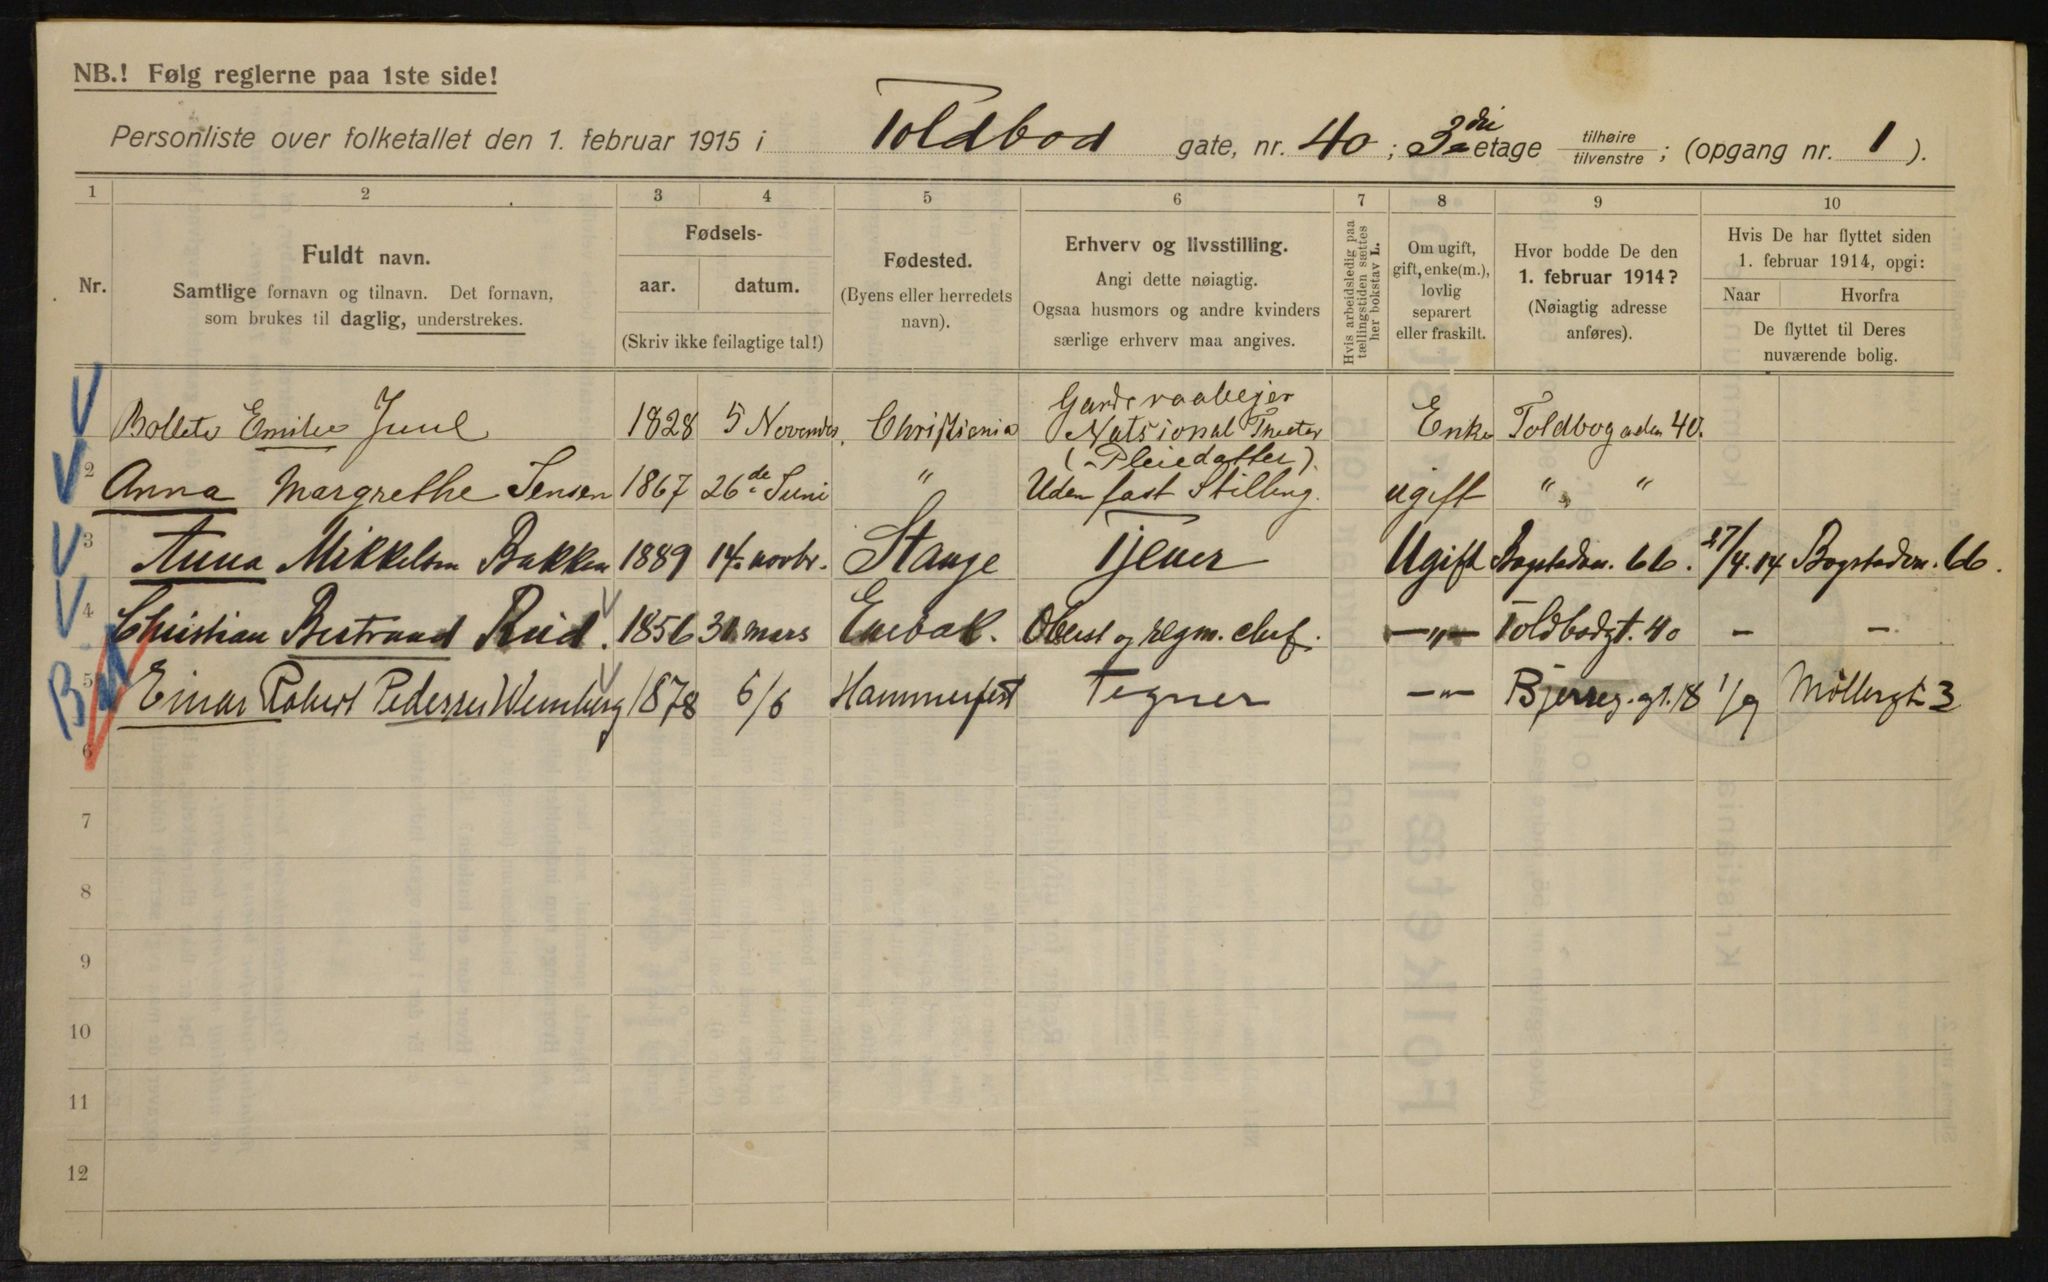 NB.! Følg reglerne paa 1ste side!
Personliste over folketallet den 1. februar 1915 i Toldbod gate, nr. 40 ; 3die etage tilhøire / tilvenstre ; (opgang nr. 1 ).
1 2 3 4 5 6 7 8 9 10
Nr.
Fuldt navn.
Samtlige fornavn og tilnavn. Det fornavn,
som brukes til daglig, understrekes.
Fødsels-
aar. datum.
(Skriv ikke feilagtige tal!)
Fødested.
(Byens eller herredets
navn).
Erhverv og livsstilling.
Angi dette nøiagtig.
Ogsaa husmors og andre kvinders
særlige erhverv maa angives.
Hvis arbeidsledig paa
tællingstiden sættes
her bokstav L.
Om ugift,
gift, enke(m.),
lovlig
separert
eller fraskilt.
Hvor bodde De den
1. februar 1914?
(Nøiagtig adresse
anføres).
Hvis De har flyttet siden
1. februar 1914, opgi:
Naar Hvorfra
De flyttet til Deres
nuværende bolig.
Bollete Emilie Juul 1828 5 Novembr. Christiania Garderaabejer Natsional Theeter Enke Toldbogaden 40.
2 Anna Margrethe Jensen 1867 26de Juni " (Pleiedatter). Uden fast Stilling. ugift " "
3 Anna Mikkelsen Bakken 1889 14. novbr. Stange Tjener Ugift Bogstadvn. 66. 27/4.14 Bogstadvn. 66.
4 Christian Bertrand Reid. 1856 31 mars Enebak. Oberst og regm. chef. —"— Toldbodgt. 40 — —
5 Einar Robert Pedersen Wennberg 1878 6/6 Hammerfest Tegner —"— Bjerreg. gt. 18 1/9 Møllergt 3
6
7
8
9
10
11
12